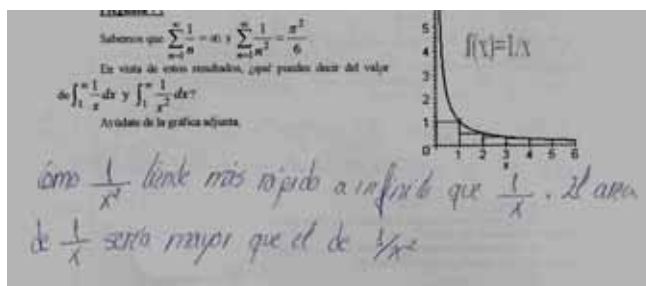 Sabemos que $\sum_{n=1}^{\infty} \frac{1}{n} = \infty$ y $\sum_{n=1}^{\infty} \frac{1}{n^2} = \frac{\pi^2}{6}$.
En vista de estos resultados, ¿qué puedes decir del valor
de $\int_1^{\infty} \frac{1}{x} dx$ y $\int_1^{\infty} \frac{1}{x^2} dx$?
Ayúdate de la gráfica adjunta.
5
4
3
2
1
0 1 2 3 4 5 6
x
f(x)=1/x
Cómo $\frac{1}{x^2}$ tiende más rápido a infinito que $\frac{1}{x}$. El area
de $\frac{1}{x}$ sería mayor que el de 1/x²